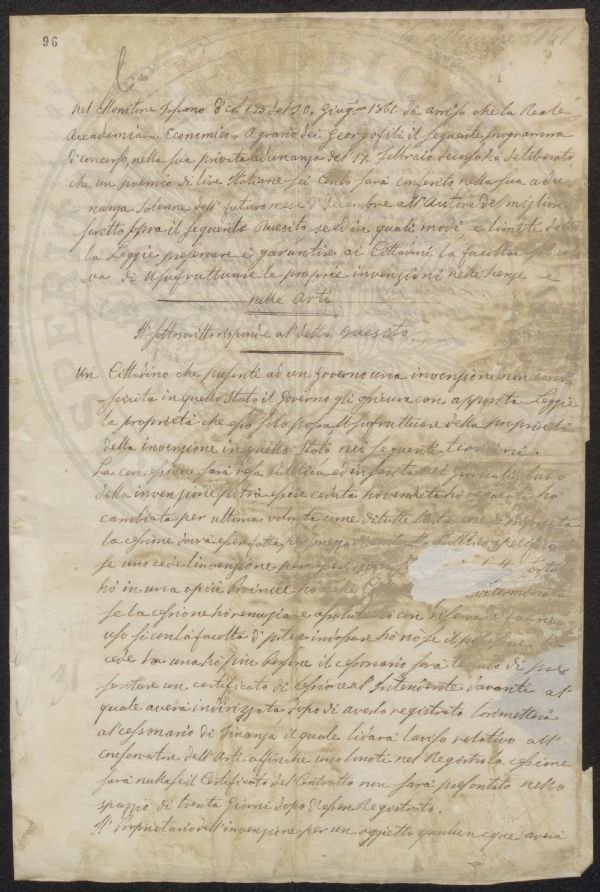 96
settembre 1861
nel Monitore Toscano d'ch 175 del 30. Giug.no 1861 dà aviso che la Reale
Accademia = Economico = Agrario dei Georgofili il seguente programma
d'concorso, nella sua privata adunanza del 17. Febbraio decorso ha deliberato
che un premio di lire Italiane Sei Cento sarà conferito nella sua adu
=nanza Solenne dell' futuro mese d' Decembre all'Autore del miglior
scritto sopra il seguente Quesito se ed in quali modi e limiti debba
la Leggie preservare e garantire ai Cittadini la facoltà
va di Usufruttuare le proprie invenzioni nelle Scenze e
nelle Arti
Il sottoscritto risponde al detto Quesito
Un Cittadino che presenti ad un Governo una invenzione non cono
sciuta in questo Stato il Governo gli assicura con apposita Leggie
la proprietà che esso solo possa Usufruttuare della proprietà
della invenzione in questo Stato nei seguenti termini.
La concessione sarà resa Pubblica ed inserita nei Giornali, l'uso
della invenzione potrà essere ceduta ho venduta ho regalata ho
cambiata per ultima volontà come di tutte l'altre cose di proprietà
la cessione dovrà esser fatta per mezzo di
se uno cede l'invenzione per
ho in una o più Provincie ho nelle
se la cessione ho renunzia e assoluta ho con riserva di farne
uso si con la facoltà di poter ho nò se il
cede ha una ho più Persone il cessonario sarà tenuto di pre
sentare un certificato di cessione al' Intendente davanti al
quale averà indirizzata dopo di averlo registrato lo rimetterà
al cessonario di Finanza il quale li darà l'aviso relativo all'
conservatore dell' Arte affinche uno lo noti nel Registro la cessione
sarà nulla se il Certificato del Contratto non sarà presentato nello
spazzio di trenta Giorni dopo d'esser Registrato.
Il Proprietario dell'invenzione per un oggietto qualunque averà